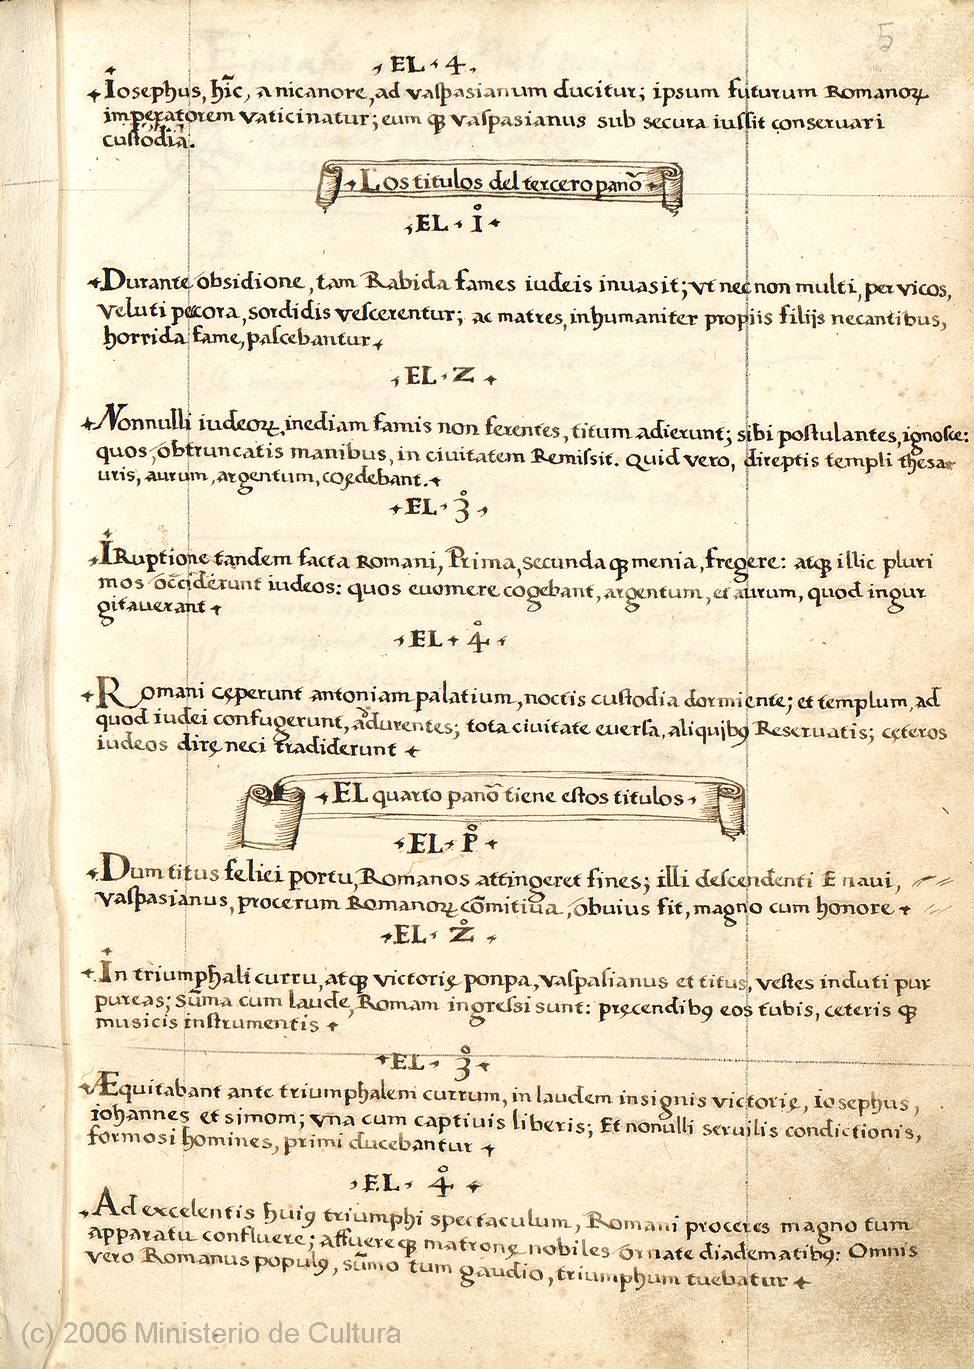 5
EL · 4 ·
Iosephus, hic, a nicanore, ad vaspasianum ducitur; ipsum futurum Romanoꝝ
imperatorem vaticinatur; eum qꝫ vaspasianus sub secura iussit conseruari
custodiā.
Los titulos del tercero panõ
EL · i°
Durante obsidione, tam Rabida fames iudeis inuasit; vt nec non multi, per vicos,
veluti pecora, sordidis vescerentur; ac matres, inhumaniter propiis filijs necantibus,
horrida fame, pascebantur
EL · z
Nonnulli iudeoꝝ, inediam famis non ferentes, titum adierunt; sibi postulantes, ignosce:
quos, obtruncatis manibus, in ciuitatem Remissit. Quid vero, direptis templi thesa
uris, aurum, argentum, coędebant.
EL · 3°
IRuptione tandem facta Romani, Prima, secunda qꝫ menia, fregere: atqꝫ illic pluri
mos occiderunt iudeos: quos euomere cogebant, argentum, et aurum, quod ingur
gitauerant
EL · 4°
Romani cęperunt antoniam palatium, noctis custodia dormiente; et templum, ad
quod iudei confugerunt, adurentes; tota ciuitate euersa, aliquibꝰ Reseruatis; cęteros
iudeos dirę neci tradiderunt
EL quarto panõ tiene estos titulos
EL · P°
Dum titus felici portu, Romanos attingeret fines; illi descendenti E naui,
vaspasianus, procerum Romanoꝝ cõmitiua, obuius fit, magno cum honore
EL · z°
In triumphali curru, atqꝫ victorię ponpa, vaspasianus et titus, vestes induti pur
pureas; sūma cum laude, Romam ingressi sunt: pręcendibꝰ eos tubis, ceteris qꝫ
musicis instrumentis
EL · 3°
Æquitabant ante triumphalem currum, in laudem insignis victorię, iosephus,
iohannes et simom; vna cum captiuis liberis; Et nonulli seruilis condictionis,
formosi homines, primi ducebantur
EL · 4°
Ad excelentis huiꝰ triumphi spectaculum, Romani proceres magno tum
apparatu confluere; affuere qꝫ matronę nobiles ornate diadematibꝰ: Omnis
vero Romanus populꝰ, sūmo tum gaudio, triumphum tuebatur
(c) 2006 Ministerio de Cultura